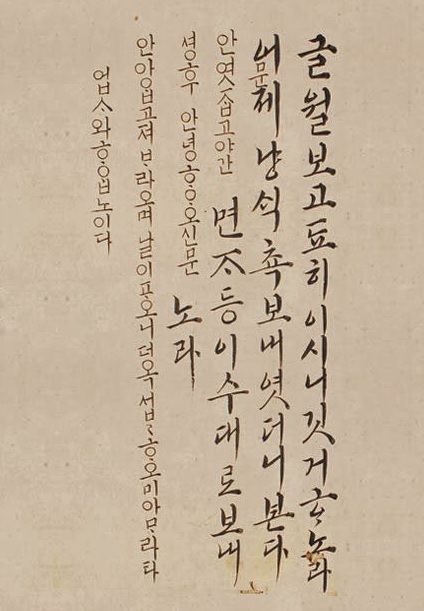 글월보고됴히이시니깃거ᄒᆞ노라
어제냥식쵹보내엿더니본다
면ᄌᆞ등이수대로보내
노라
문
안엿ᄌᆞᆸ고야간
셩후 안녕ᄒᆞᄋᆞ오신문
안아ᄋᆞᆸ고져ᄇᆞ라오며날이포오니더옥섭섭ᄒᆞᄋᆞ오미아ᄆᆞ라타
업ᄉᆞ와ᄒᆞᄋᆞᆸ노이다